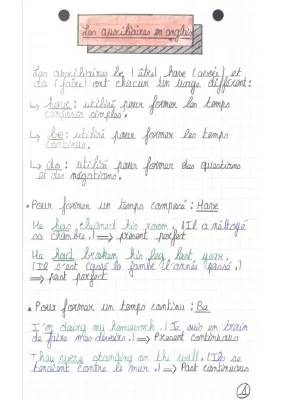 Les auxiliaires en anglais
Les auxiliaires be (être), have (avoir) et
do (faire) ont chacun un usage différent:
↳ have: utilisé pour former les temps
composés simples.
↳ be: utilisé pour former les temps
continus.
↳ do: utilisé pour former des questions
et des négations.
• Pour former un temps composé: Have
He has cleaned his room. (Il a nettoyé
sa chambre.) ⟹ present perfect
He had broken his leg last year.
(Il s'est cassé la jambe l'année passée.)
⟹ past perfect
• Pour former un temps continu: Be
I'm doing my homework. (Je suis en train
de faire mes devoirs.) ⟹ Present continuous
They were standing on the wall. (Ils se
tenaient contre le mur.) ⟹ Past continuous
1